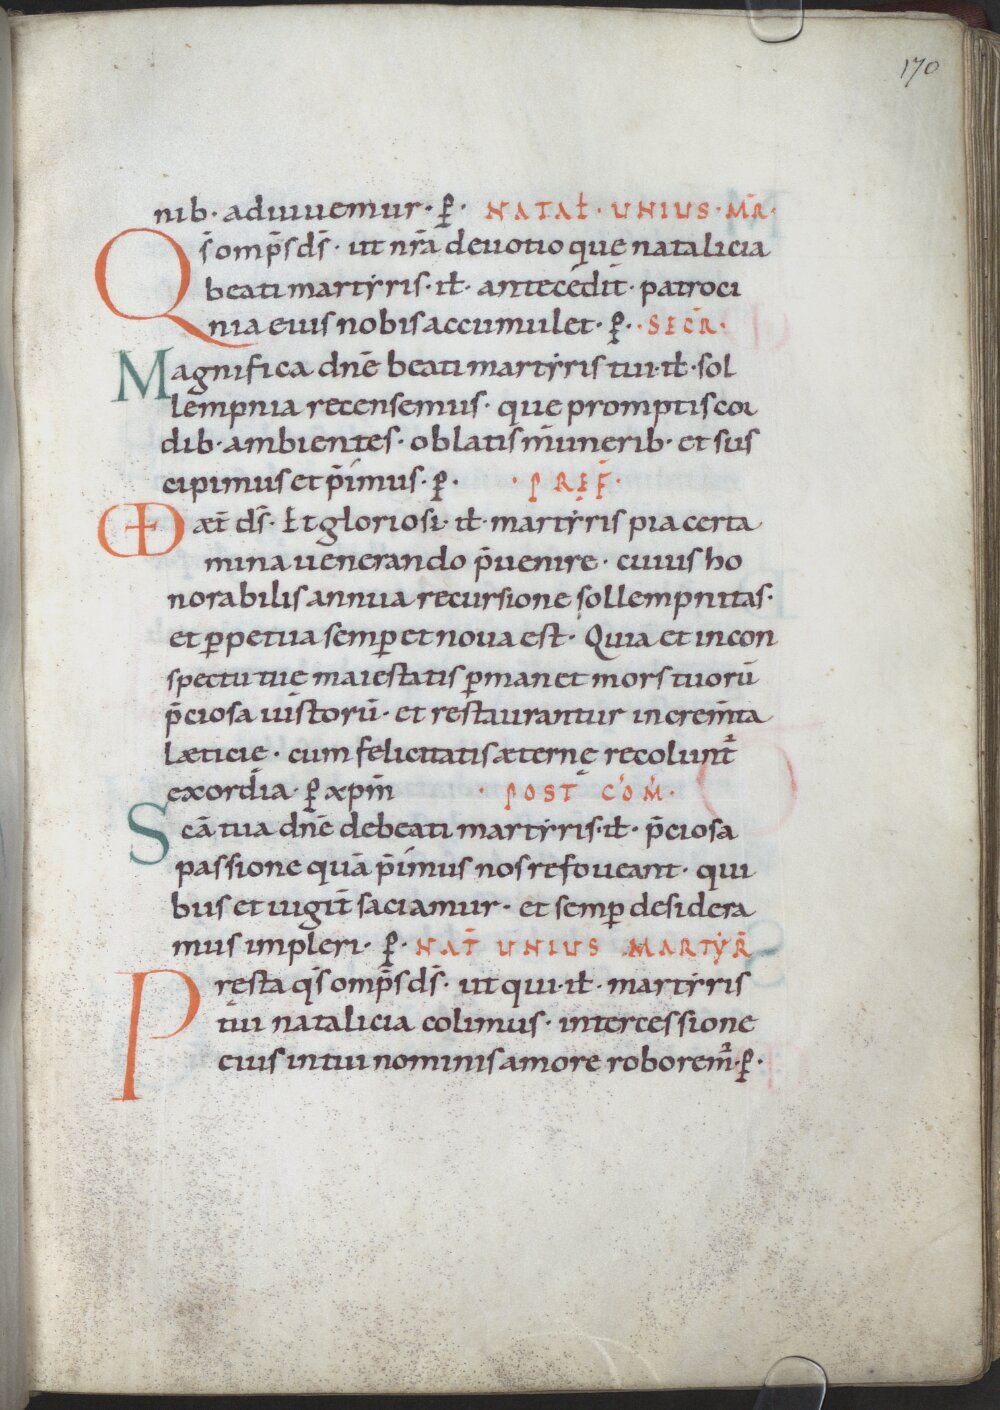 170
nib· adiuuemur· ꝑ· NATAŁ· UNIUS· MR̄·
Qs̄ omp̄s ds̄· ut nrā deuotio que natalicia
beati martẏris· ił· antecedit· patroci
nia eius nobis accumulet· ꝑ· ·SECR̄·
Magnifica dnē beati martẏris tui· ił· sol
lempnia recensemus· que promptis cor
dib· ambientes· oblatis muńerib· et sus
cipimus et p̄imus· ꝑ· · PREF̄·
VD æt̄ ds̄· Et gloriosi· ił· martẏris pia certa
mina uenerando p̄uenire· cuius ho
norabilis annua recursione sollempnitas·
et ꝑpetua semꝑ et noua est· Quia et in con
spectu tue maiestatis ꝑmanet mors tuorū
p̄ciosa iustorū· et restaurantur increm̄ta
læticie· cum felicitatis æternę recolunt̄
exordia· ꝑ xp̄m · POST COM̄·
Scā tua dnē de beati martẏris· ił· p̄ciosa
passione quā p̄imus nos refoueant· qui
bus et iugit̄ saciamur· et semꝑ desidera
mus impleri· ꝑ· NAT̄ UNIUS MARTẎR̄
Pręsta qs̄ omp̄s ds̄· ut qui· ił· martẏris
tui natalicia colimus· intercessione
eius in tui nominis amore roborem̄· ꝑ·